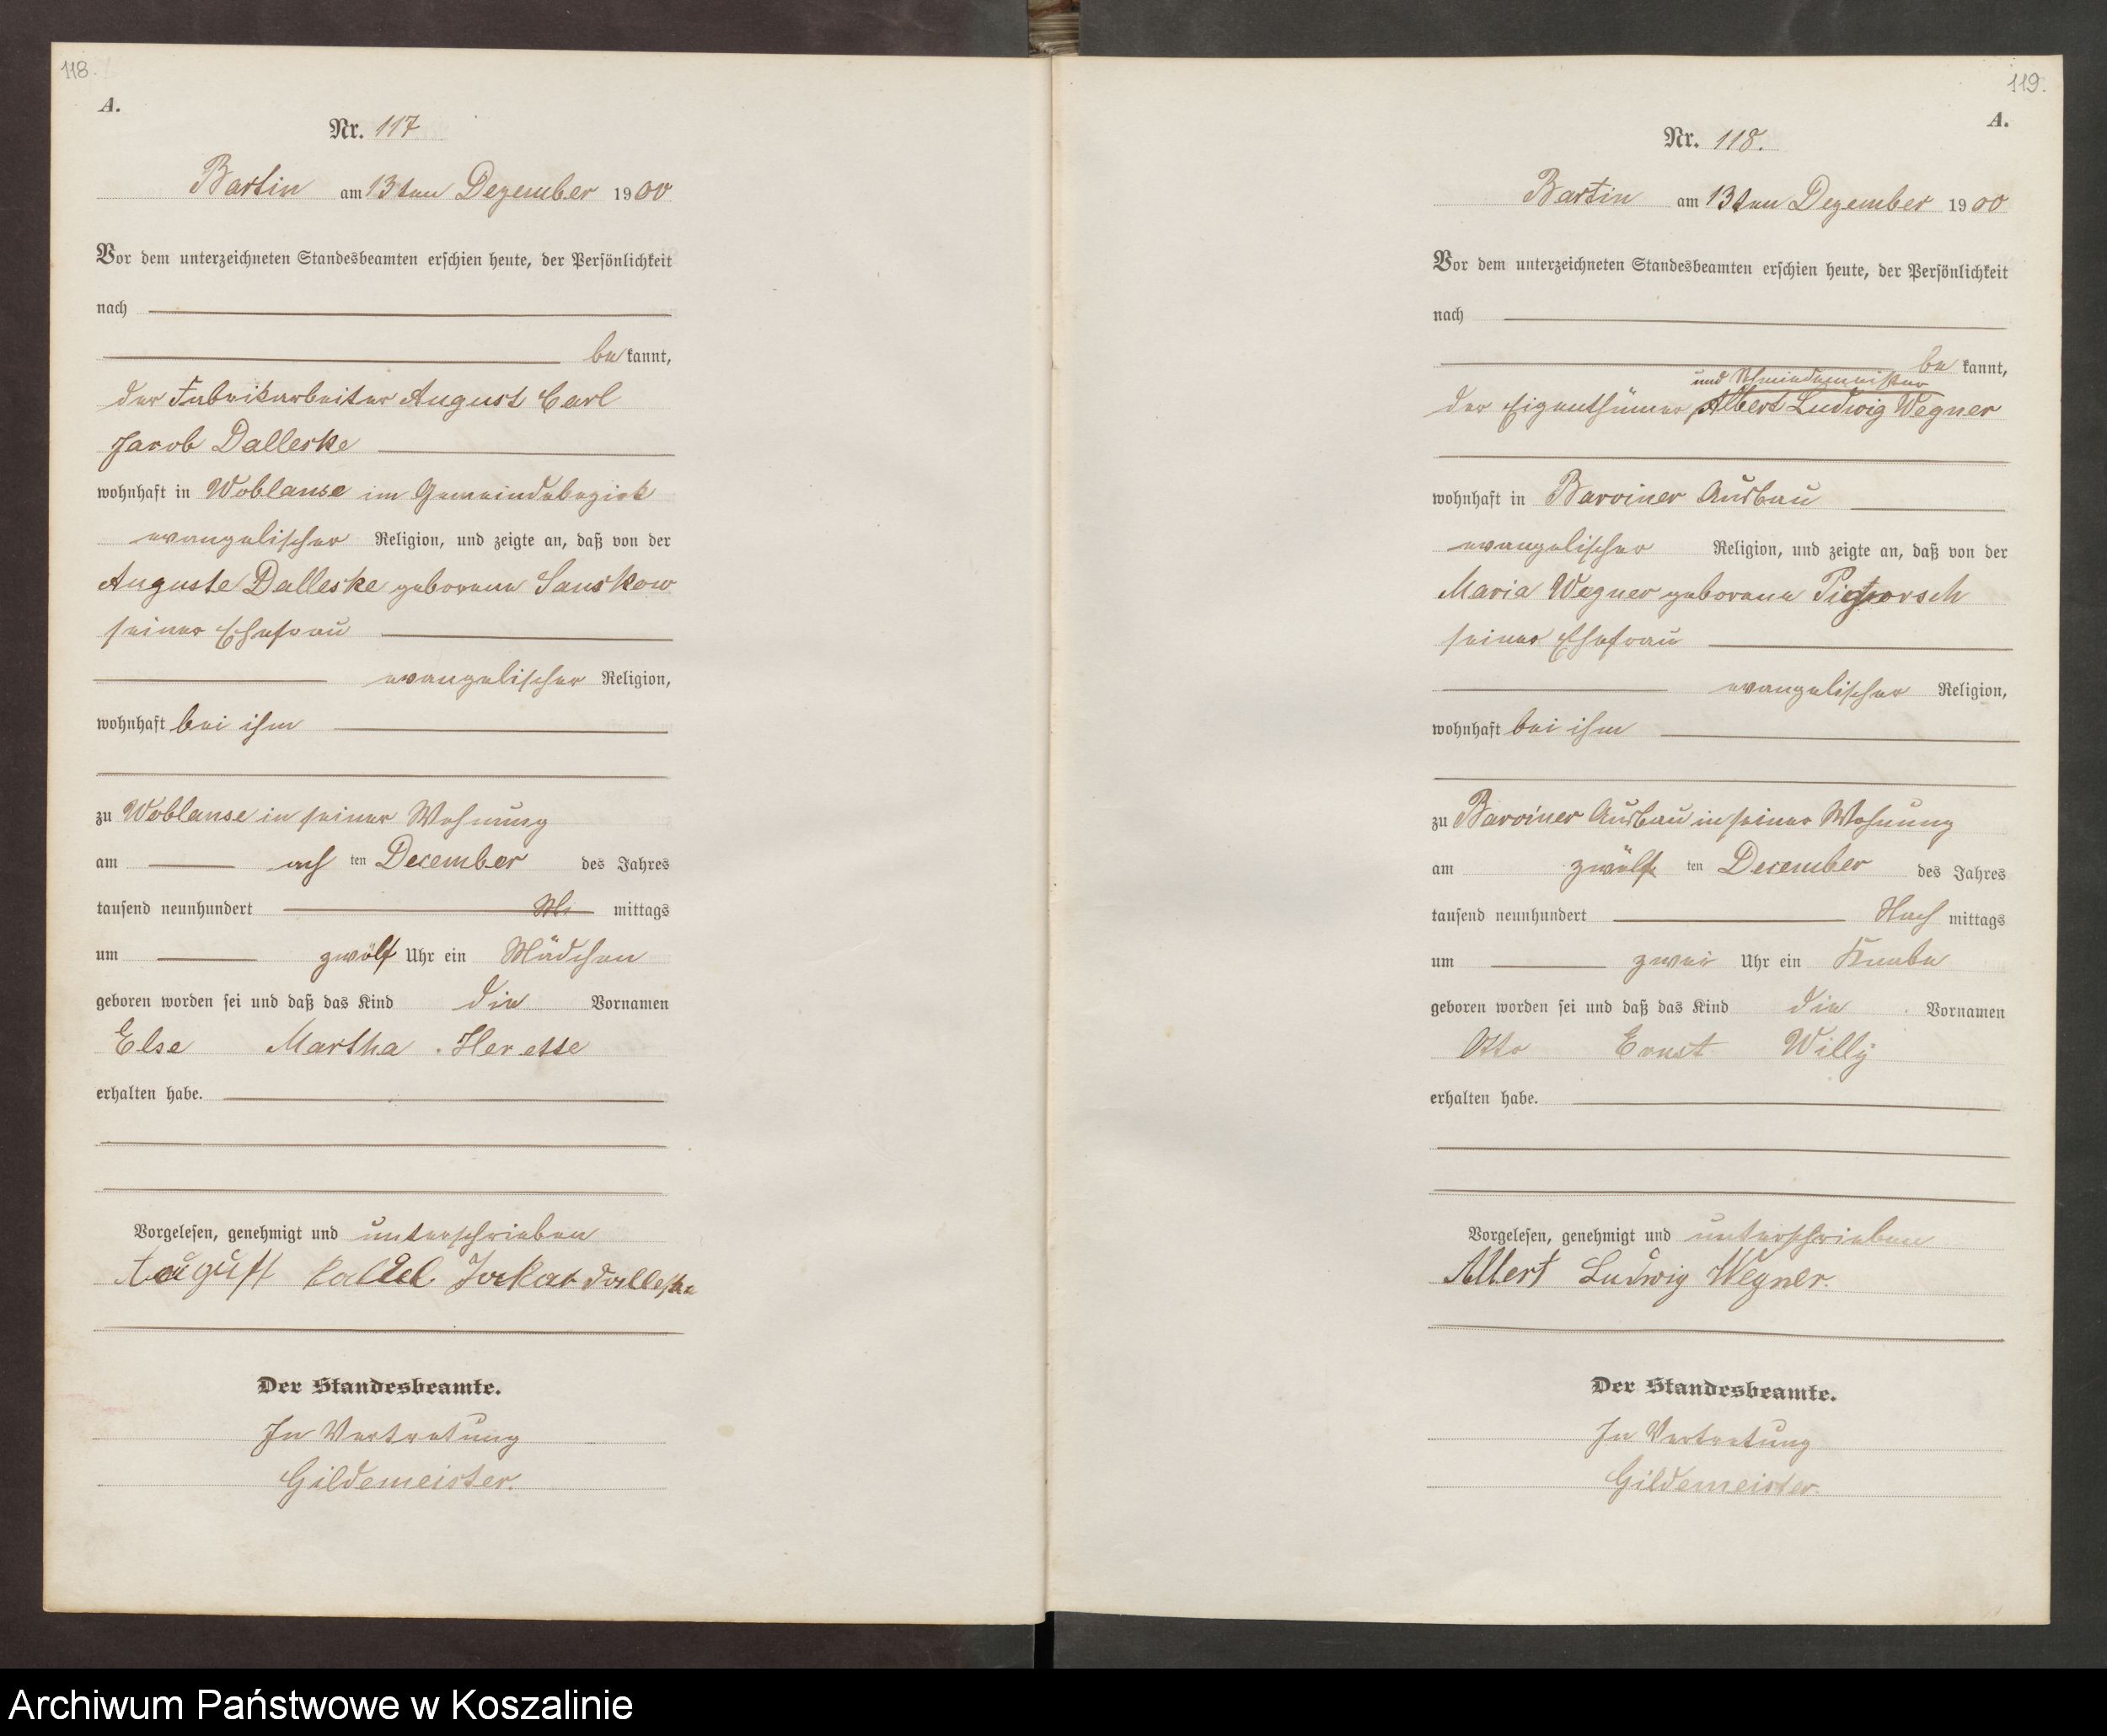 118.
A.
Nr. 117
Bartin am 13ten Dezember 1900
Vor dem unterzeichneten Standesbeamten erschien heute, der Persönlichkeit
nach
bekannt,
der Fabrikarbeiter August Carl
Jacob Dalleske
wohnhaft in Woblanse im Gemeindebezirk
evangelischer Religion, und zeigte an, daß von der
Auguste Dalleske geborene Sauskow
seiner Ehefrau
evangelischer Religion,
wohnhaft bei ihm
zu Woblanse in seiner Wohnung
am achten December des Jahres
tausend neunhundert mittags
um zwölf Uhr ein Mädchen
geboren worden sei und daß das Kind die Vornamen
Else Martha
erhalten habe.
Vorgelesen, genehmigt und unterschrieben
August Dalleske
Der Standesbeamte.
In Vertretung
Gildemeister.
119.
A.
Nr. 118.
Bartin am 13ten Dezember 1900
Vor dem unterzeichneten Standesbeamten erschien heute, der Persönlichkeit
nach
bekannt,
und Schmiedemeister
der Eigenthümer Albert Ludwig Wegner
wohnhaft in Barviner Ausbau
evangelischer Religion, und zeigte an, daß von der
Maria Wegner geborene
seiner Ehefrau
evangelischer Religion,
wohnhaft bei ihm
zu Barviner Ausbau in seiner Wohnung
am zwölften December des Jahres
tausend neunhundert Nachmittags
um zwei Uhr ein Knabe
geboren worden sei und daß das Kind die Vornamen
Otto Ernst Willy
erhalten habe.
Vorgelesen, genehmigt und unterschrieben
Albert Ludwig Wegner.
Der Standesbeamte.
In Vertretung
Gildemeister.
Archiwum Państwowe w Koszalinie